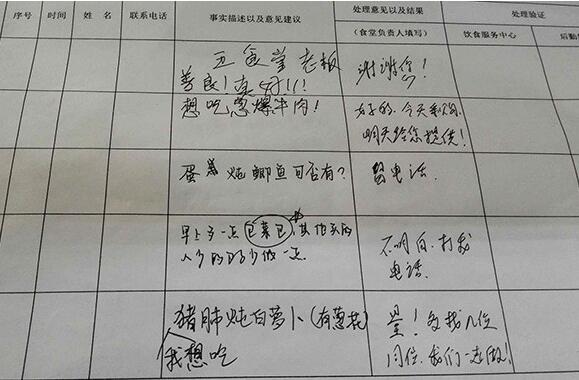 序号 时间 姓 名 联系电话 事实描述以及意见建议 处理意见以及结果 处理验证
(食堂负责人填写) 饮食服务中心 后勤
五食堂老板
善良！真好!!!
谢谢您！
想吃葱爆牛肉！
好的,今天采购,
明天给您提供！
蛋羹 炖鲫鱼可否有？
留电话.
早上多一点包菜包,其他买的
人少的可少做一点.
不明白.打我
电话.
猪肺炖白萝卜(有葱花)
我想吃
显！多找几位
同位.我们一起做！